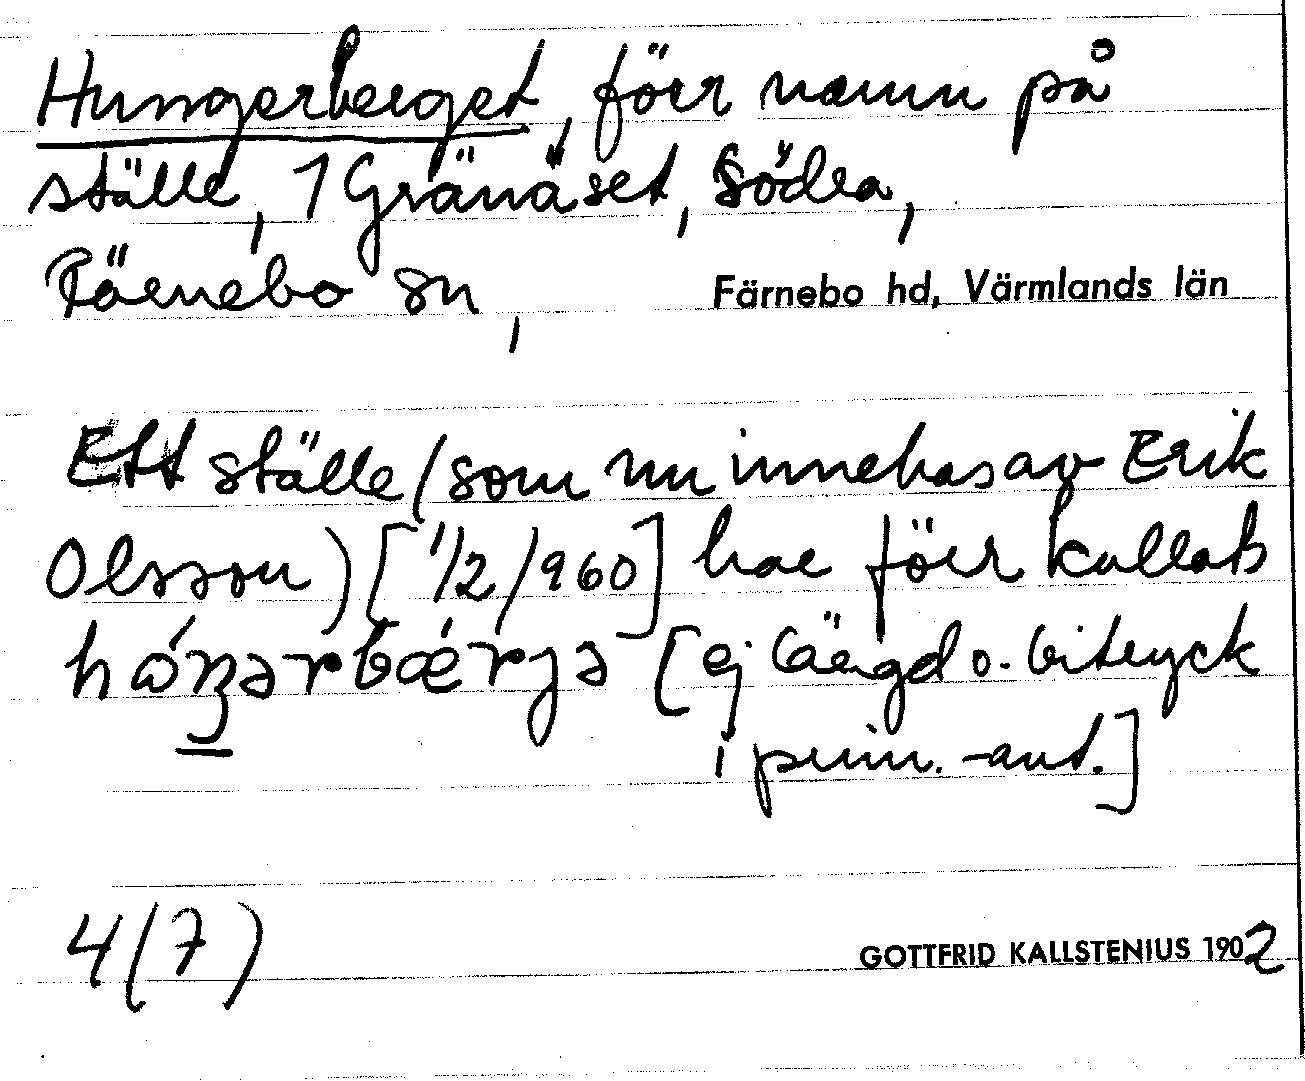 Hungerberget, förr namn på
ställe, 1 Gränåset, Södra,
Färnebo sn, Färnebo hd, Värmlands län
Ett ställe (som nu innehas av Erik
Olsson) [1/2 1960] har förr kallats
håŋərbærjə [ej längd o. bitryck
i prim.-ant.]
4(7) GOTTFRID KALLSTENIUS 1902